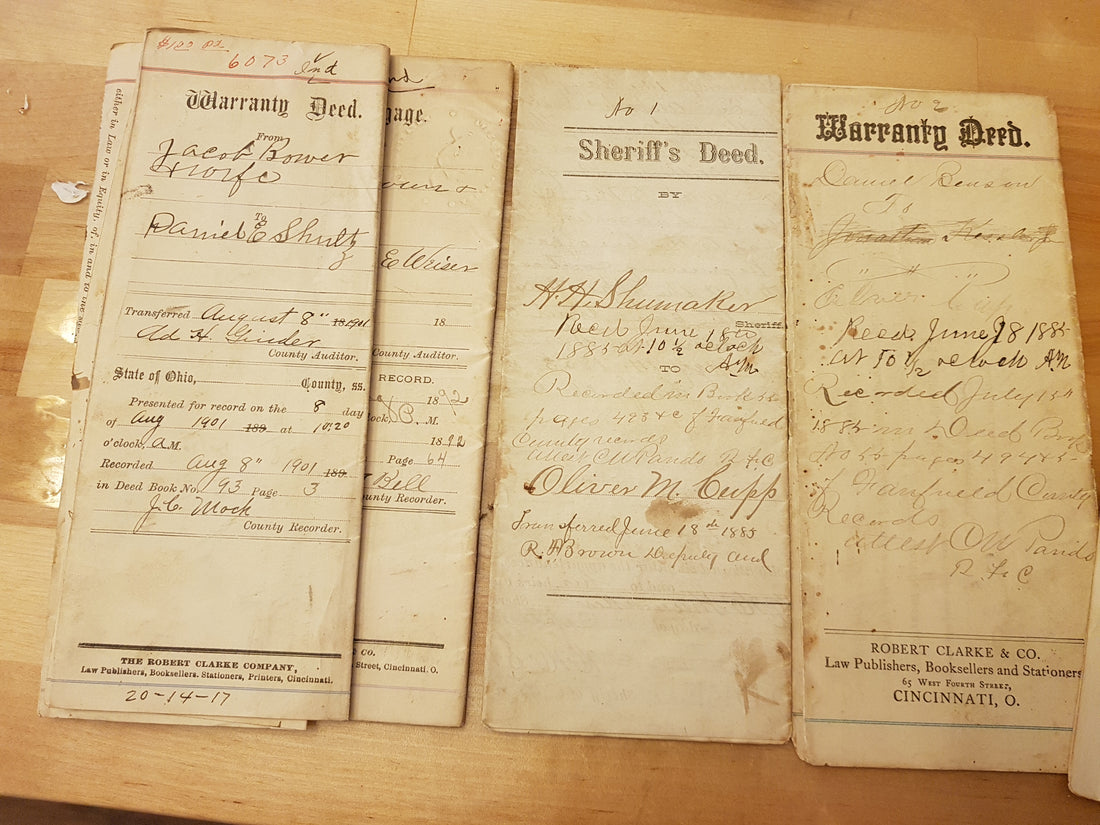 either in Law or in Equity, of, in and to the
$1.00 pd
6073
Warranty Deed.
From
Jacob Bower
& wife
To
Daniel E Shultz
Transferred August 8" 18 1901
Ad H. Ginder
County Auditor.
State of Ohio, County, ss.
Presented for record on the 8 day
of Aug 1901 189 at 10:20
o'clock, a M.
Recorded Aug 8" 1901 189
in Deed Book No. 93 Page 3
J.C. Mock
County Recorder.
THE ROBERT CLARKE COMPANY,
Law Publishers, Booksellers, Stationers, Printers, Cincinnati.
20-14-17
gage.
E Weiser
18
County Auditor.
RECORD.
1892
M.
1892
Page 64
Bell
County Recorder.
CO.
Street, Cincinnati, O.
No 1
Sheriff's Deed.
BY
H. H. Shumaker
Sheriff
Recd June 18th
1885 at 10 1/2 oclock
AM
TO
Recorded in Book 55
pages 493 &c of Fairfield
County records
attest CW Pands R F C
Oliver M. Cupp
Transferred June 18th 1885
R. H Brown Deputy aud
No 2
Warranty Deed.
Daniel Benson
To
Jonathan
Oliver Cupp
Recd. June 18 1885
at 10 1/2 oclock AM
Recorded July 15th
1885 in Deed Book
No 55 pages 494 & 5
of Fairfield County
Records
attest CW Pands
R F C
ROBERT CLARKE & CO.
Law Publishers, Booksellers and Stationers
65 West Fourth Street,
CINCINNATI, O.